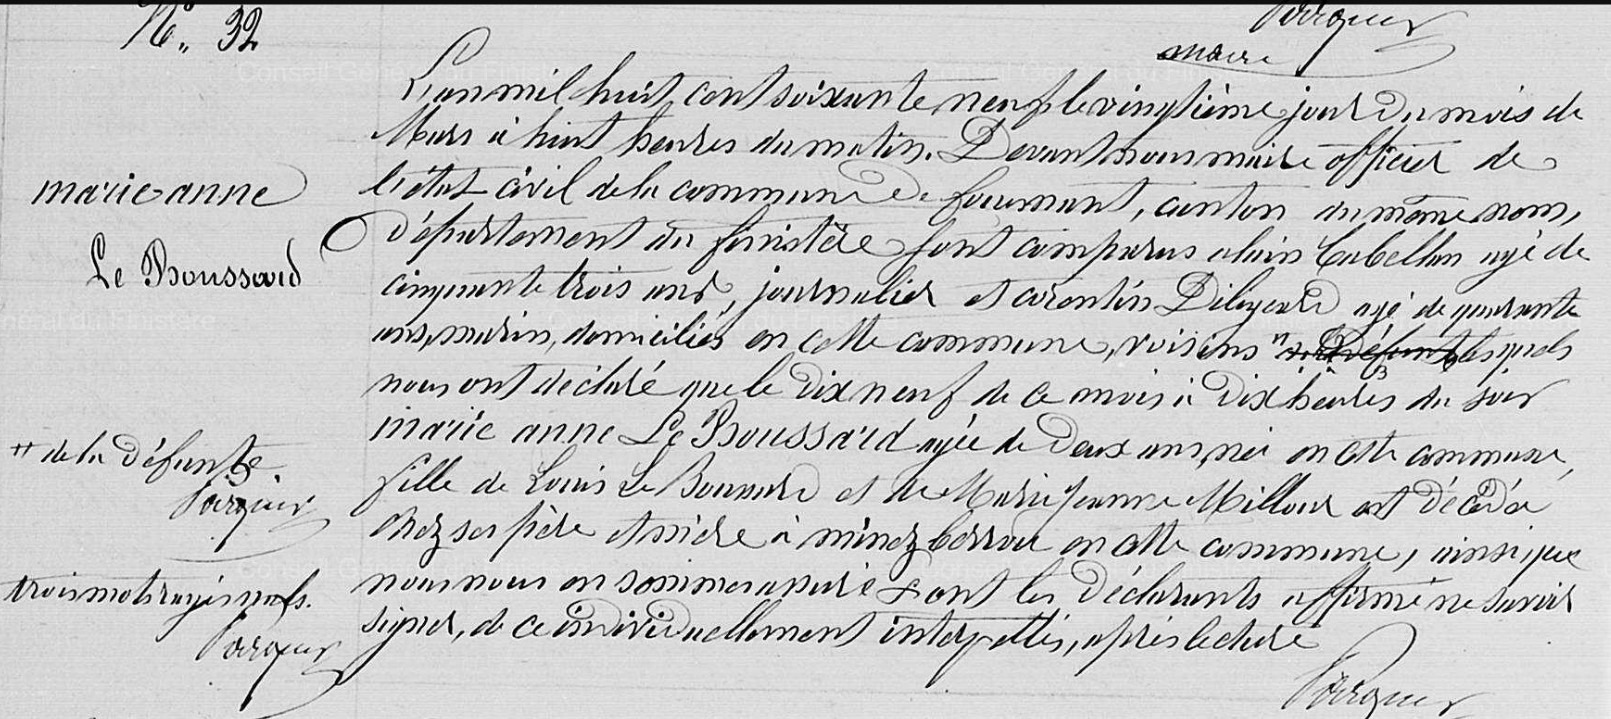 N°. 32
maire
L'an mil huit cent soixante neuf le vingtième jour du mois de
Mars à huit heures du matin. Devant nous maire officier de
l'état civil de la commune de fouesnant, canton du même nom,
département du finistère sont comparus alain Cabellan agé de
cinquante trois ans, journalier et corentin agé de quarante
ans, marin, domiciliés en cette commune, voisins " du Défunt lesquels
nous ont déclaré que le dix neuf de ce mois à dix heures du soir
marie anne Le Boussard agée de Deux ans, née en cette commune,
fille de Louis Le Boussard et de Marie Jeanne Millour est décédée
chez ses père et mère à en cette commune, ainsi que
nous nous en sommes assuré & ont les déclarants affirmé ne savoir
signer, de ce individuellement interpellés, après lecture
marie-anne
Le Boussard
" de la défunte
trois mots rayés nuls.